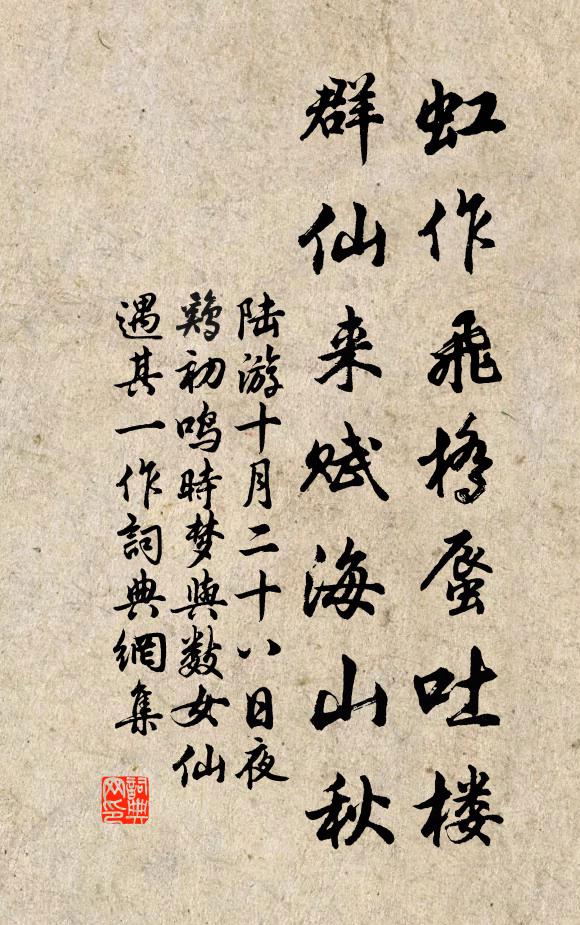 虹作飛橋蜃吐楼
群仙来赋海山秋
陆游十月二十八日夜
鷄初鸣時梦與数女仙
遇其一作詞典網集
詞典
网印